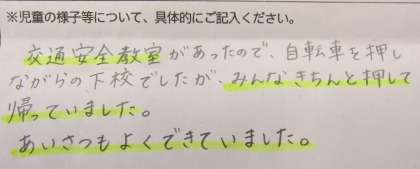 ※児童の様子等について、具体的にご記入ください。
交通安全教室があったので、自転車を押し
ながらの下校でしたが、みんなきちんと押して
帰っていました。
あいさつもよくできていました。